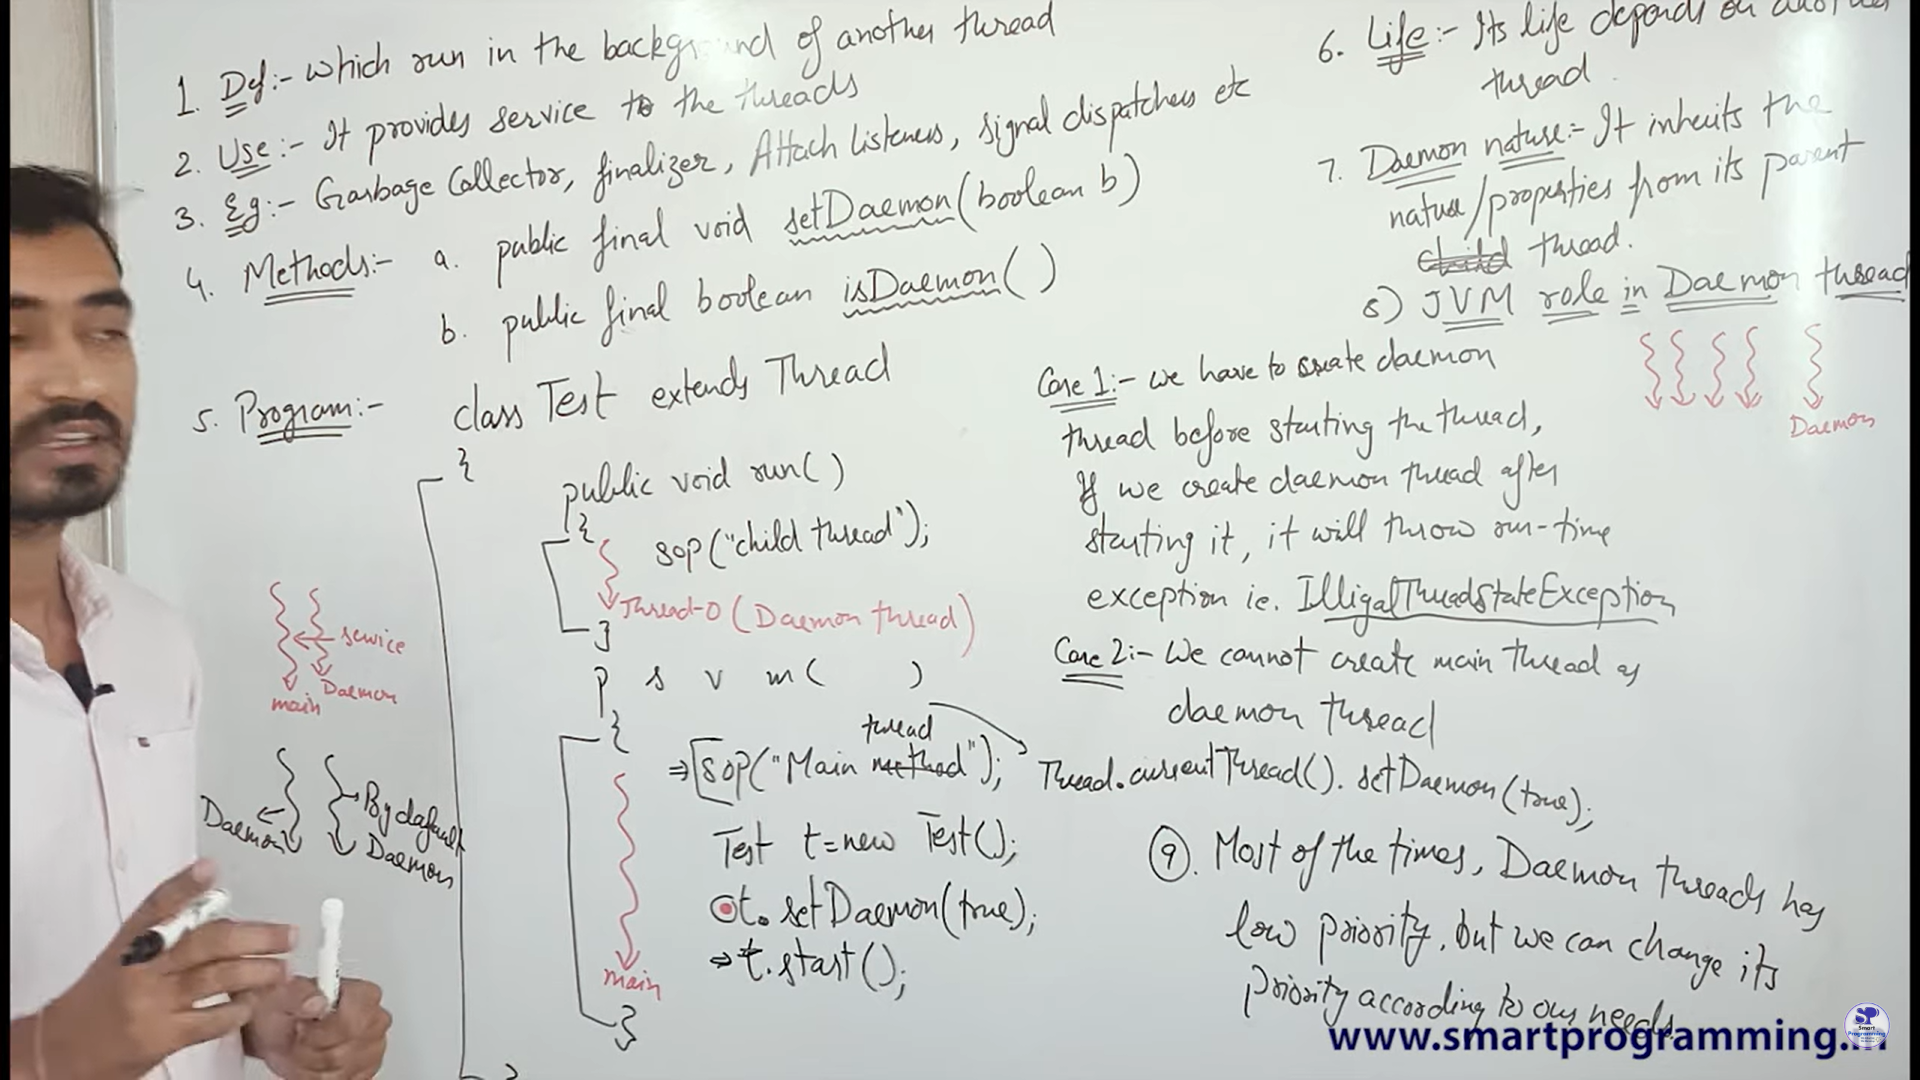 1. Def:- which run in the background of another thread
2. Use:- It provides service to the threads
3. Eg:- Garbage Collector, finalizer, Attach listeners, signal dispatchers etc
4. Methods:- a. public final void setDaemon(boolean b)
b. public final boolean isDaemon()
5. Program:- class Test extends Thread
{
public void run()
{
sop("child thread");
Thread-0 (Daemon thread)
}
p s v m( )
{
thread
⇒ sop("Main method");
Test t=new Test();
t.setDaemon(true);
⇒ t.start();
main
}
}
service
main Daemon
Daemon
By dafault
Daemon
6. Life:- Its life depends on another
thread.
7. Daemon nature:- It inherits the
nature/properties from its parent
child thread.
8) JVM role in Daemon thread
Daemon
Case 1:- we have to create daemon
thread before starting the thread,
If we create daemon thread after
starting it, it will throw run-time
exception ie. IlligalThreadStateException
Case 2:- We cannot create main thread as
daemon thread
Thread.currentThread().setDaemon(true);
9. Most of the times, Daemon threads has
low priority, but we can change its
priority according to our needs.
www.smartprogramming.in
SP
Smart
Programming